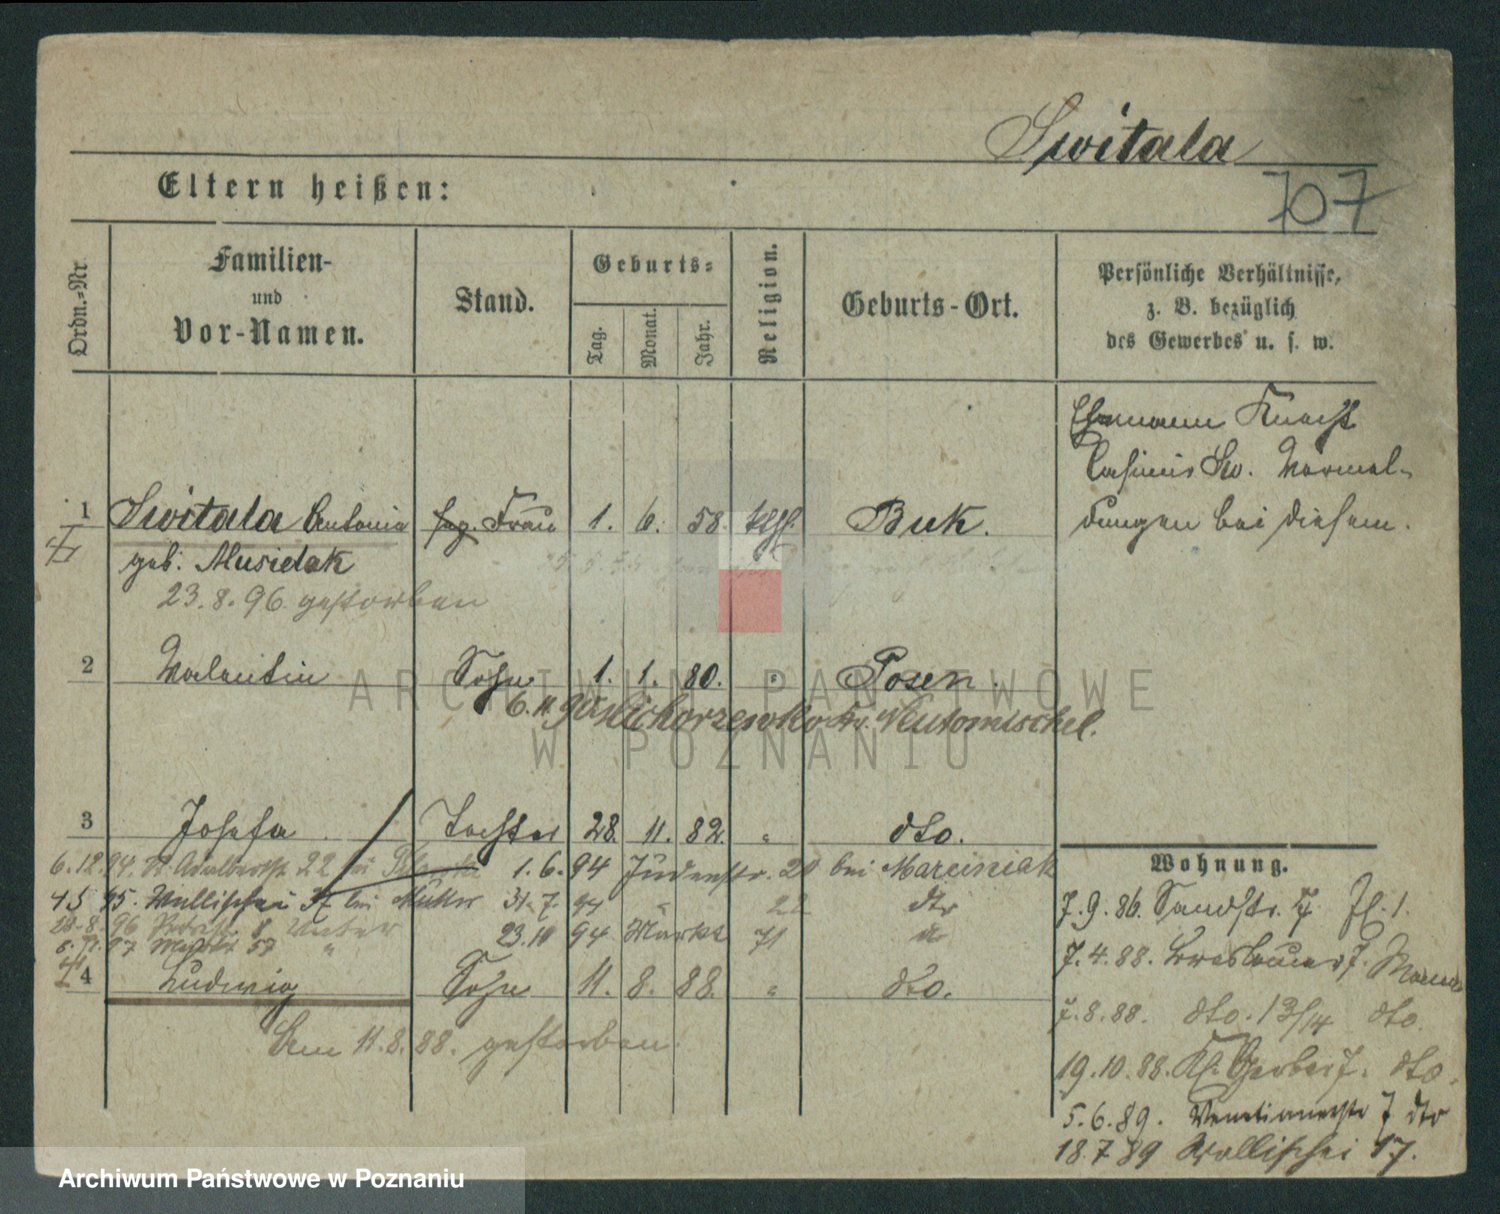 Switala
707
Eltern heißen:
Ordn.=Nr.
Familien-
und
Vor-Namen.
Stand.
Geburts=
Tag.
Monat.
Jahr.
Religion.
Geburts-Ort.
Persönliche Verhältnisse,
z. B. bezüglich
des Gewerbes u. s. w.
Ehemann Knecht
Casimir Sw. Normal-
dungen bei diesem.
1 Switala Antonia Frau 1. 6. 58. kth. Buk.
geb. Musielak
23.8.96 gestorben
2 Valentin Sohn 1. 1. 80. " Posen.
6.11.95 Michorzewko Kr. Neutomischel.
3 Josefa Tochter 28. 11. 82. " dto.
6.12.94. St. Adalbertstr. 22 bei 1.6.94 Judenstr. 20 bei Marciniak
95. Wallischei 37 bei Mutter 31.7. 94 " 22 dto
20.8.96 8 Vater 23.10 94 Markt 71 dto
97 57 "
4 Ludwig Sohn 11. 8. 88. " dto.
Am 11.8.88. gestorben.
Wohnung.
7.9.86. Sandstr.
7.4.88. Breslauerst.
7.8.88. dto. 13/14 dto.
19.10.88. Kl. Gerberst. dto.
5.6.89. Venetianerstr 7 dto
18.7.89 Wallischei 17.
ARCHIWUM PAŃSTWOWE
W POZNANIU
Archiwum Państwowe w Poznaniu